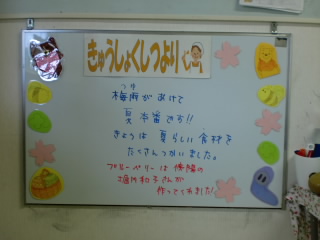 きゅうしょくしつより
つゆ
梅雨があけて
夏本番です!!
きょうは 夏らしい食材を
たくさんつかいました。
ブルーベリーは
作ってくれました!